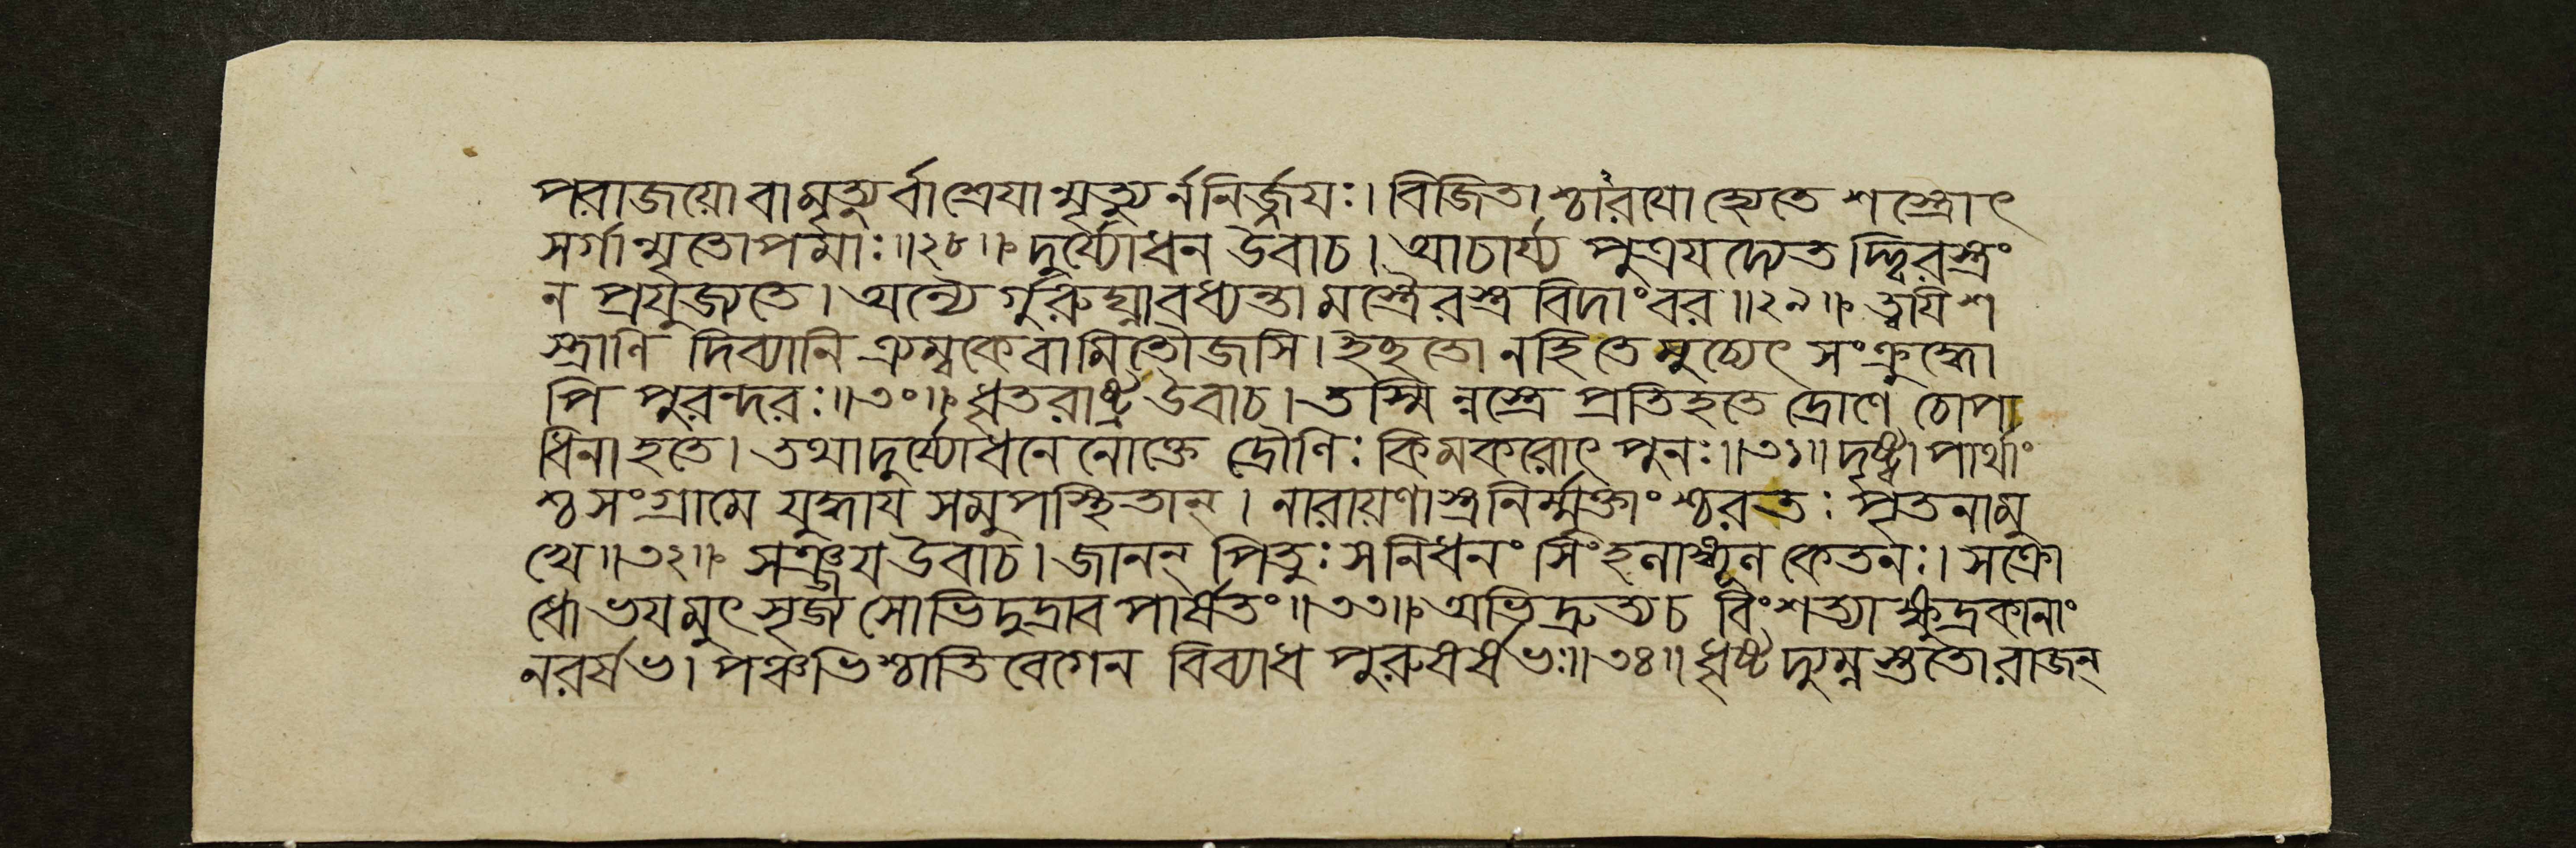 পরাজয়োবামৃত্যুর্ব্বাশ্রেযান্মৃত্যুর্ননির্জ্জযঃ। বিজিতাশ্চারযোহ্যেতে শস্ত্রোৎ
সর্গান্মৃতোপমাঃ॥২৮॥ দুর্য্যোধন উবাচ। আচার্য্য পুত্রযদ্যেত দ্দ্বিরস্ত্রং
ন প্রযুজ্যতে। অন্যৈ র্গুরুঘ্নাবধ্যন্তা মস্ত্রৈরস্ত্র বিদাংবর॥২৯॥ ত্বযি শ
স্ত্রাণি দিব্যানি ত্র্যম্বকেবামিতৌজসি। ইছতো নহি তে মুচ্যেৎ সংক্রুদ্ধো
পি পুরন্দরঃ॥৩০॥ ধৃতরাষ্ট্র উবাচ। তস্মি ন্নস্ত্রে প্রতিহতে দ্রোণে চোপা
ধিনাহতে। তথাদুর্য্যোধনে নোক্তো দ্রৌণিঃ কিমকরোৎ পুনঃ॥৩১॥ দৃষ্ট্বা পার্থাং
শ্চ সংগ্রামে যুদ্ধায সমুপস্থিতান্। নারায়ণাস্ত্রনির্ম্মুক্তাংশ্চরতঃ পৃতনামু
খে॥৩২॥ সঞ্জয উবাচ। জানন্ পিতুঃ সনিধনং সিংহলাঙ্গূল কেতনঃ। সক্রো
ধো ভযমুৎসৃজ্য সোভিদুদ্রাব পার্ষতং॥৩৩॥ অভিদ্রুত্যচ বিংশত্যা ক্ষুদ্রকানাং
নরর্ষভ। পঞ্চভিশ্চাতিবেগেন বিব্যাধ পুরুষর্ষভঃ॥৩৪॥ ধৃষ্টদ্যুম্ন স্ততো রাজন্